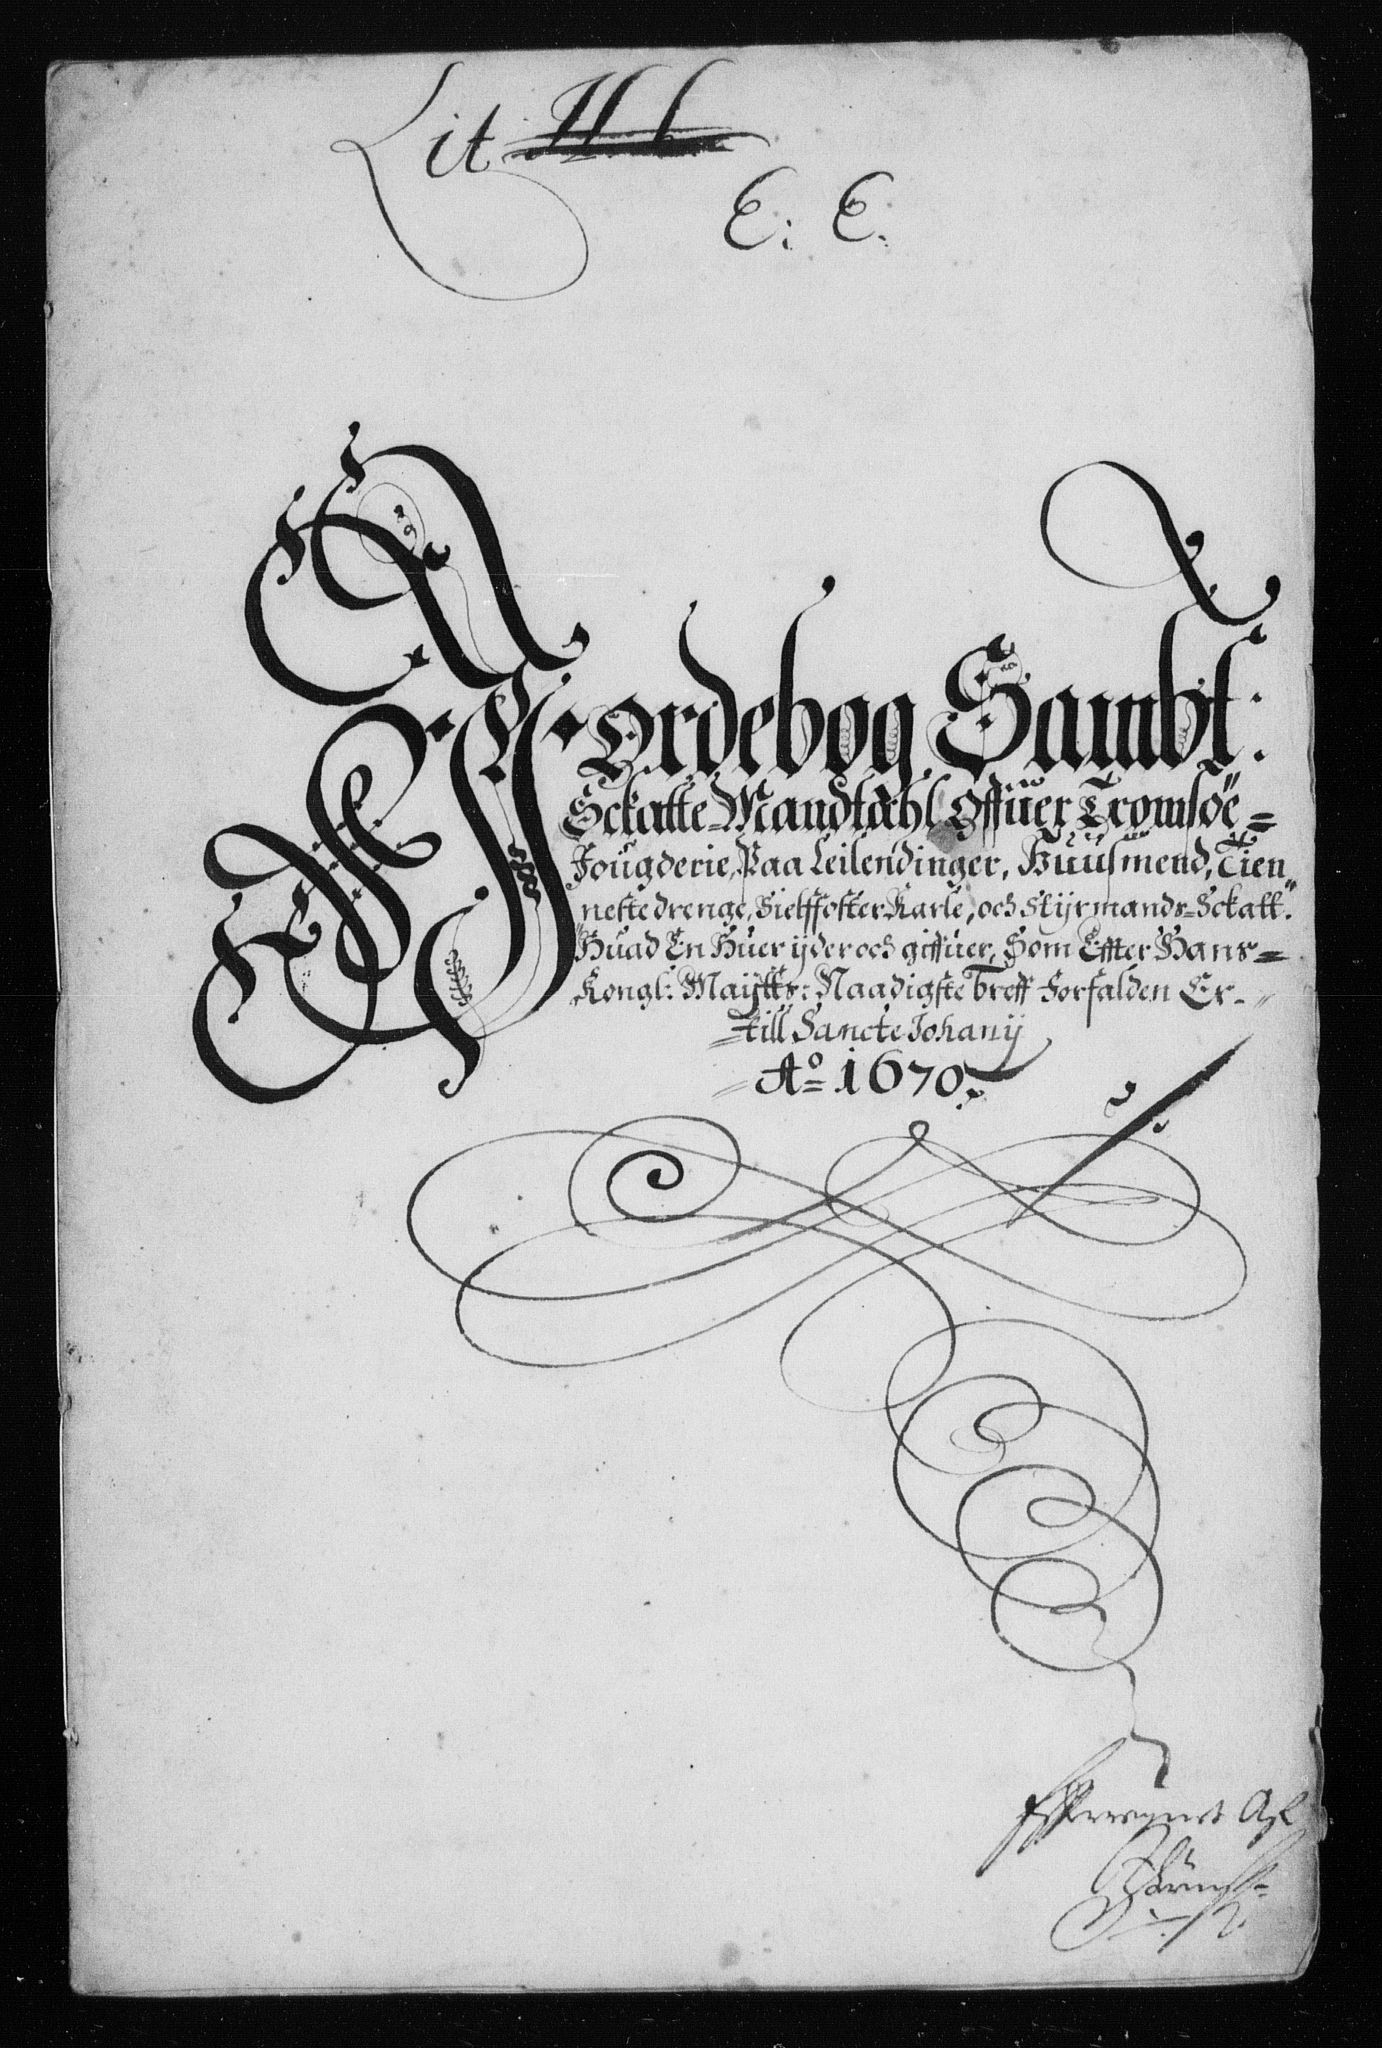 Lit H h
E: E.
Jordebog Sambt:
Sckatte-Mandtahl Offuer Tromsøe=
Fougderie, Paa Leilendinger, Huusmend, Tien„
nestedrenge, Sielffoster Karle, och Styrmands=Sckatt.
Huad En Huer yder och giffuer, Som Effter Hans=
Kongl: Maytts: Naadigste breff Forfalden Er-
till Sancte Johany
Ao 1670.
Effterregnet Af